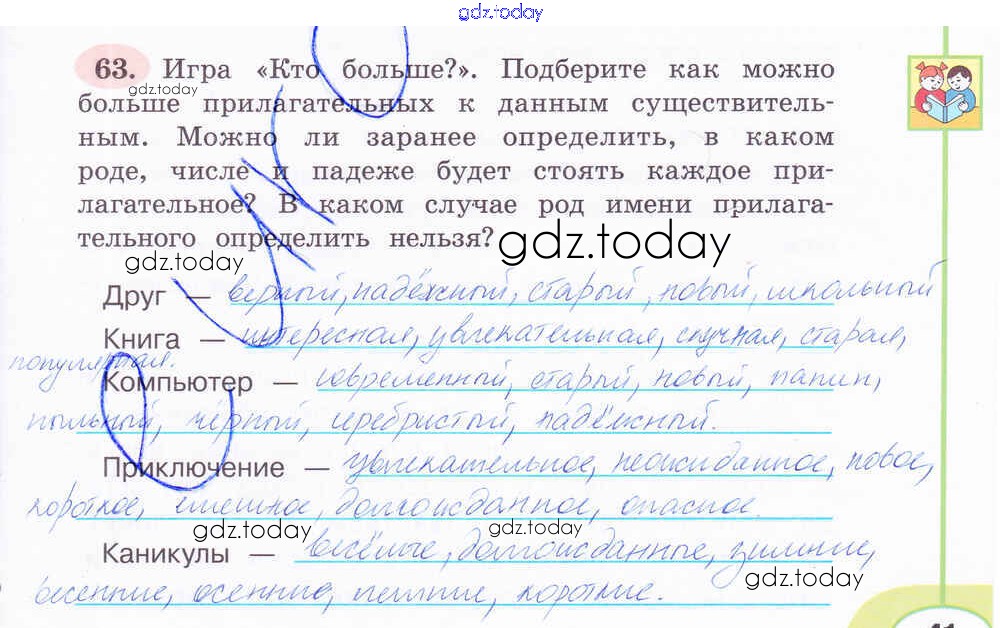 gdz.today
63. Игра «Кто больше?». Подберите как можно
gdz.today
больше прилагательных к данным существитель-
ным. Можно ли заранее определить, в каком
роде, числе и падеже будет стоять каждое при-
лагательное? В каком случае род имени прилага-
тельного определить нельзя?
gdz.today
gdz.today
Друг — верный, надёжный, старый, новый, школьный
Книга — интересная, увлекательная, скучная, старая,
популярная.
Компьютер — современный, старый, новый, папин,
пыльный, чёрный, серебристый, надёжный.
Приключение — увлекательное, неожиданное, новое,
короткое, смешное, долгожданное, опасное.
gdz.today
gdz.today
Каникулы — весёлые, долгожданные, зимние,
gdz.today
весенние, осенние, летние, короткие.
41